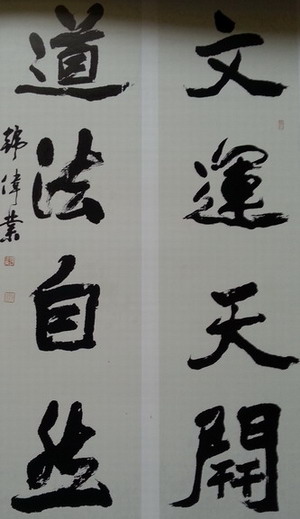 文運天開
道法自然
韩偉業